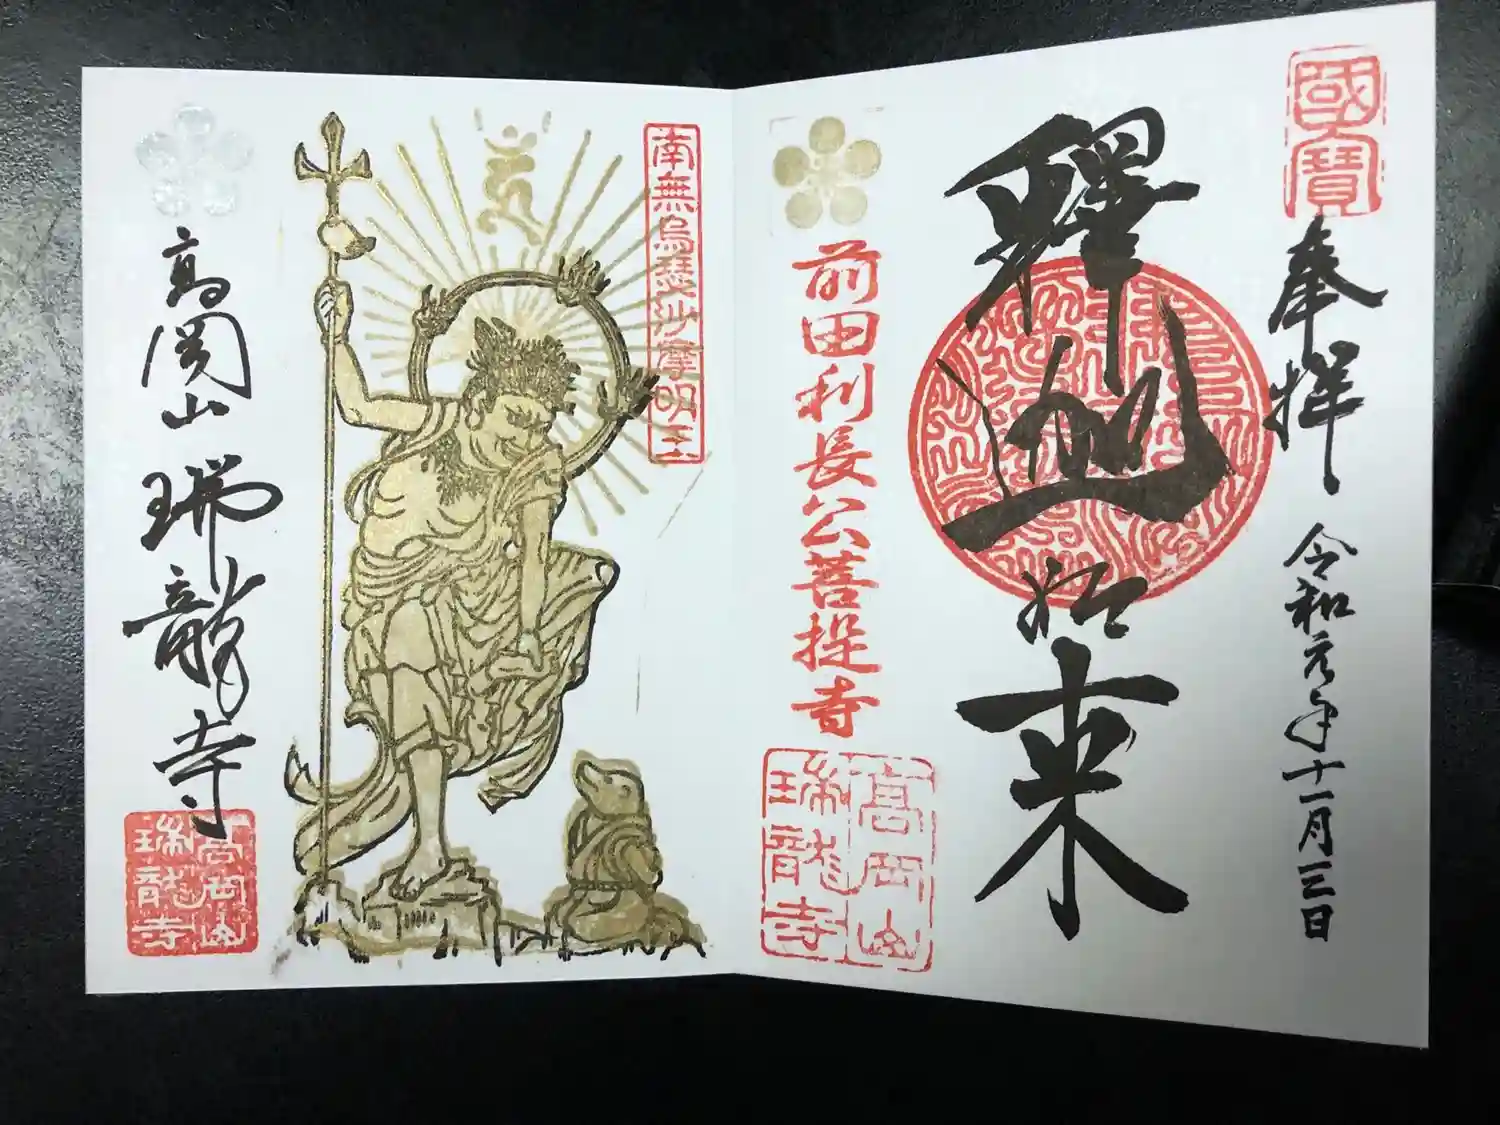 國寶
奉拜
令和元年十一月三日
釋迦如来
前田利長公菩提寺
高岡山
瑞龍寺
南無烏瑟沙摩明王
高岡山瑞龍寺
高岡山
瑞龍寺